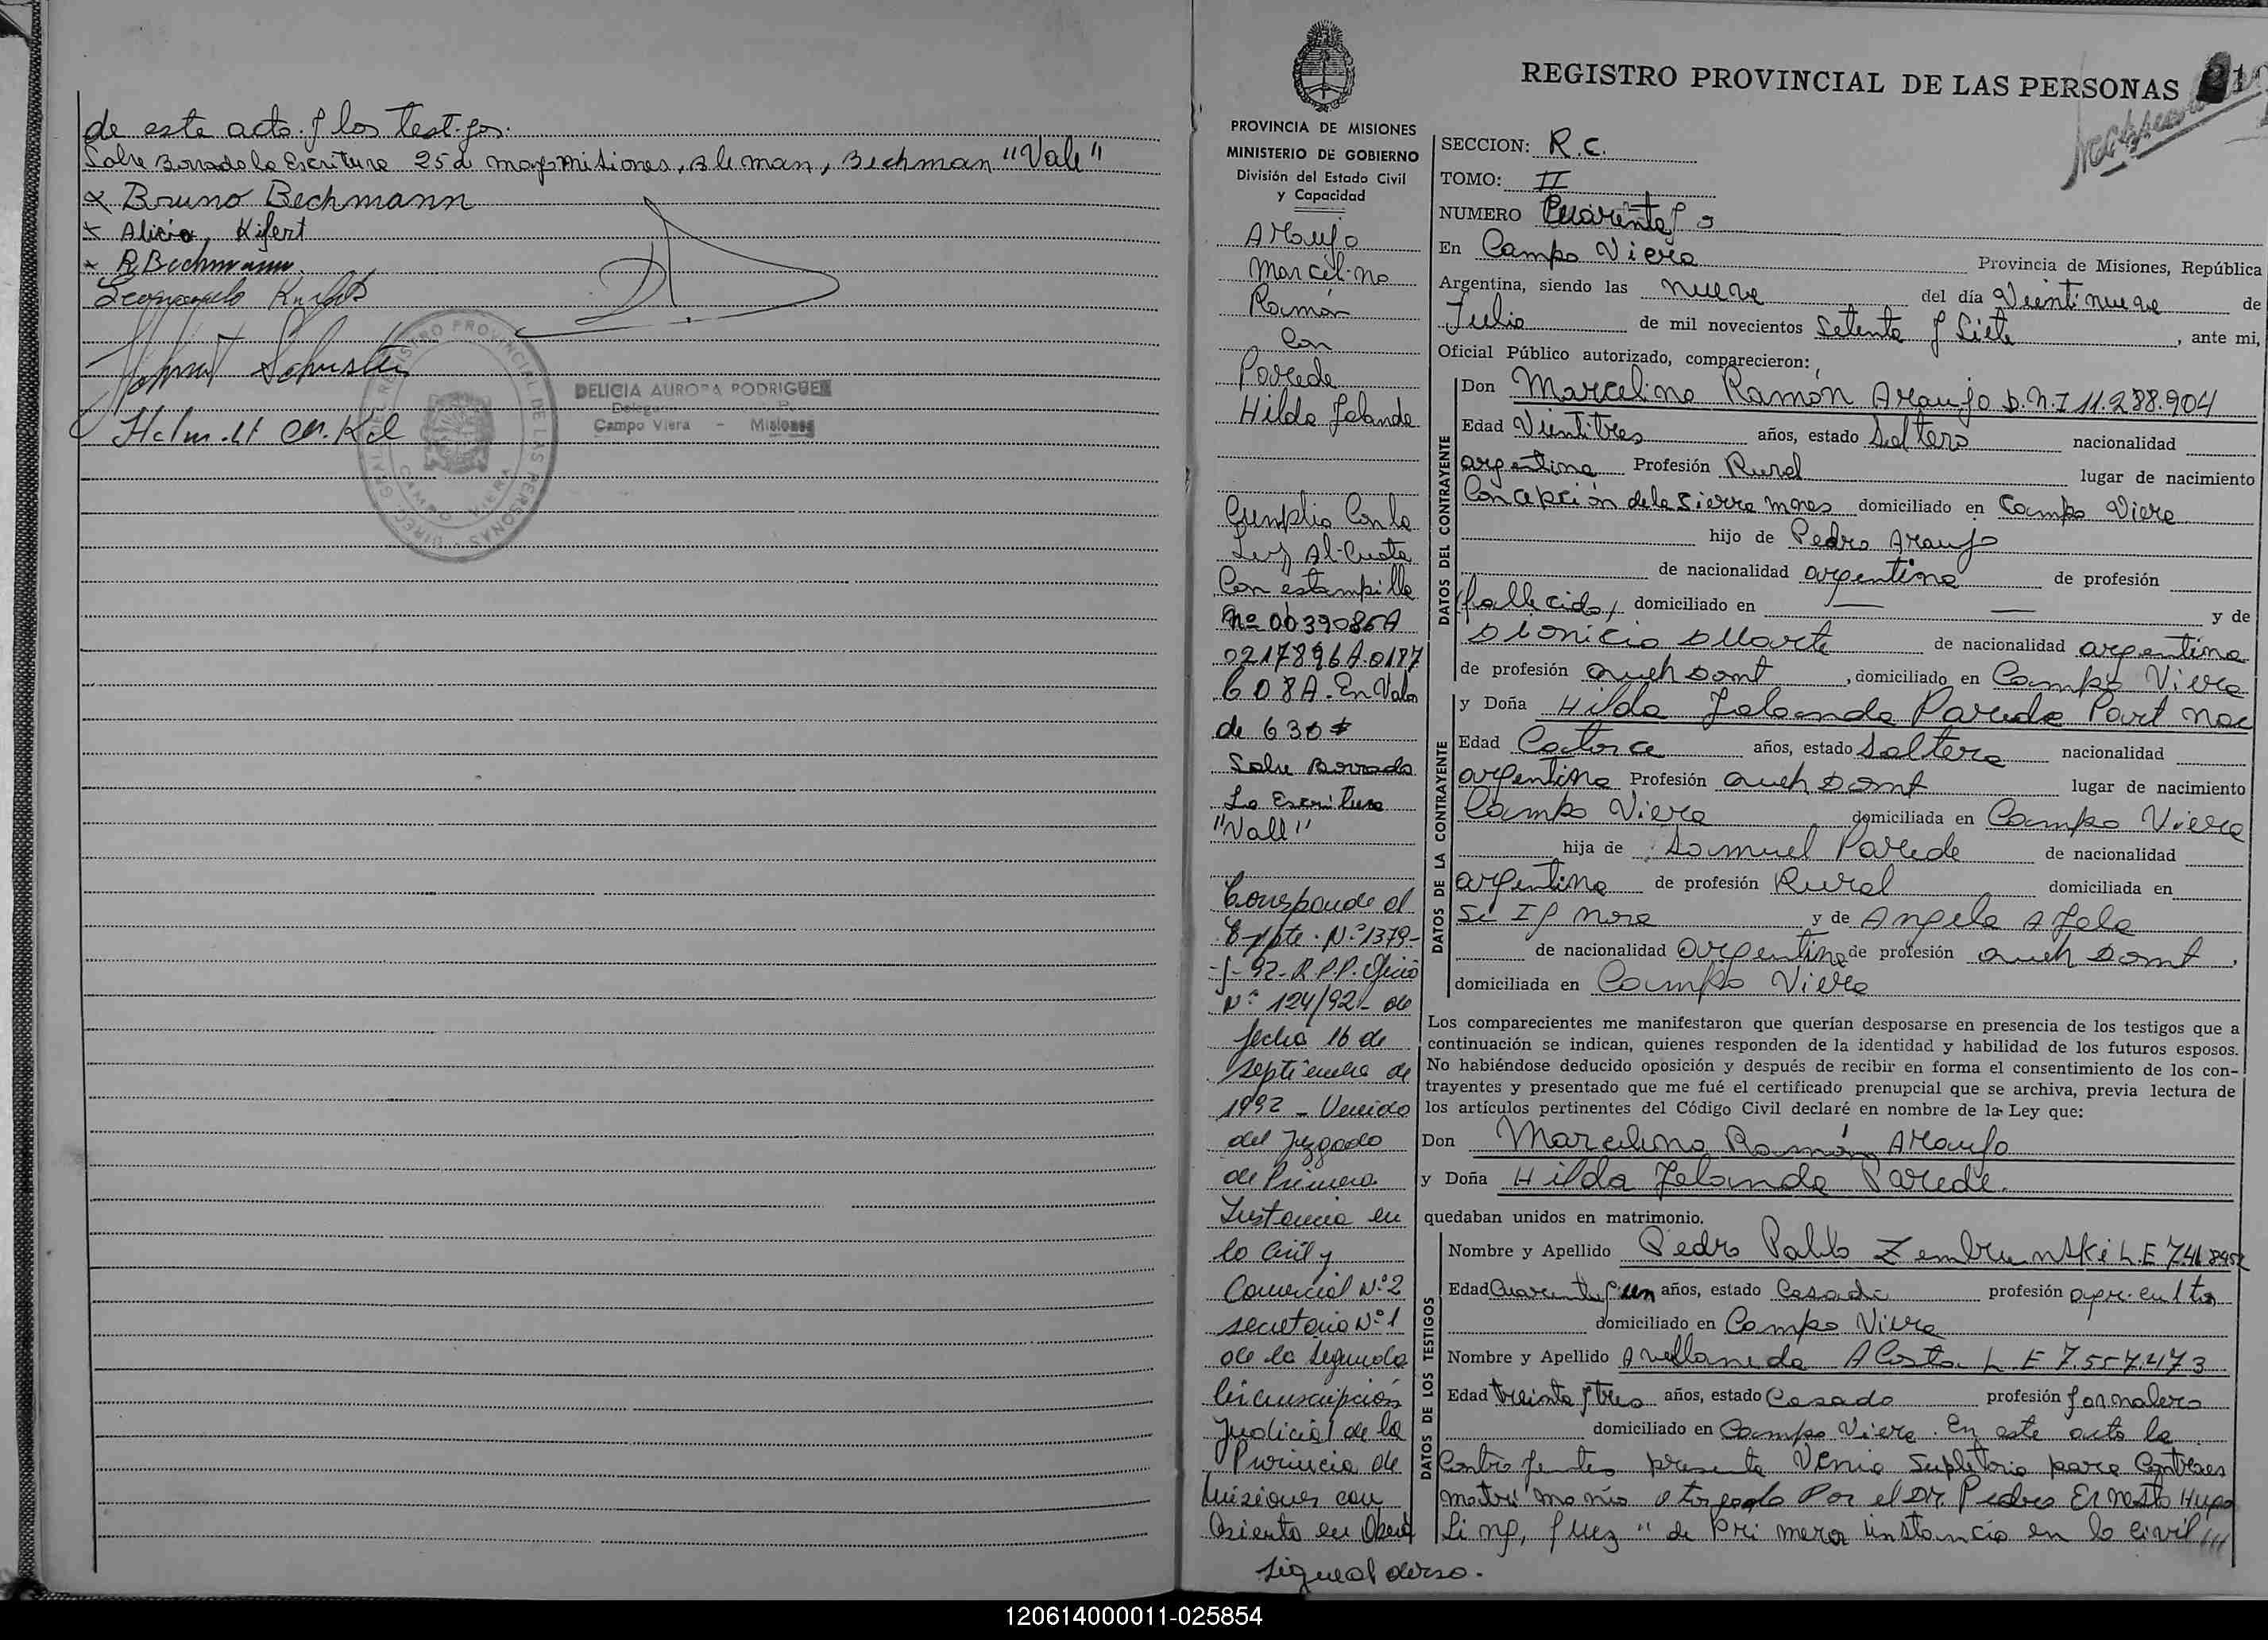 de este acto y los Testigos.
Sobre Borrado la Escritura 25 d mayo misiones, Aleman, Bechman "Vale"
x Bruno Bechmann
x Alicia, Kifert
x R Bechmann
DIREC. GRAL. DEL REGISTRO PROVINCIAL DE LAS PERSONAS
CAMPO VIERA
DELICIA AURORA RODRIGUEZ
Campo Viera - Misiones
PROVINCIA DE MISIONES
MINISTERIO DE GOBIERNO
División del Estado Civil
y Capacidad
Araujo
Marcelino
Ramón
Con
Parede
Hilda Yolanda
Cumplio Con la
Ley Al-Cuota
Con estampilla
Nº 0039086A
0217896A.0187
608A. En Valor
de 630$
Sobre Borrado
La Escritura
"Vall"
Corresponde al
Expte. Nº 1379-
-J-92-R.P.P. Oficio
Nº 124/92- de
fecha 16 de
septiembre de
1992 - Venido
del Juzgado
de Primera
Instancia en
lo Civil y
Comercial Nº2
secretaria Nº1
de la Segunda
Circunscripción
Judicial de la
Provincia de
Misiones con
Asiento en Oberá
sigue al dorso.
REGISTRO PROVINCIAL DE LAS PERSONAS
SECCION: R.C.
TOMO: II
NUMERO Cuarenta y
En Campo Viera Provincia de Misiones, República
Argentina, siendo las nueve del día Veintinueve de
Julio de mil novecientos Setenta y Siete, ante mi,
Oficial Público autorizado, comparecieron:
DATOS DEL CONTRAYENTE
Don Marcelino Ramón Araujo D.N.I 11.288.904
Edad Vientitres años, estado Soltero nacionalidad
argentina Profesión Rural lugar de nacimiento
Concepción de la Sierra Mnes domiciliado en Campo Viera
hijo de Pedro Araujo
de nacionalidad argentina de profesión
fallecido, domiciliado en — — y de
Dionicia Duarte de nacionalidad argentina
de profesión queh Domt, domiciliado en Campo Viera
DATOS DE LA CONTRAYENTE
y Doña Hilda Yolanda Parede Part Nac
Edad Catorce años, estado Soltera nacionalidad
argentina Profesión queh Domt lugar de nacimiento
Campo Viera domiciliada en Campo Viera
hija de Samuel Parede de nacionalidad
argentina de profesión Rural domiciliada en
Se Ignora y de Angela Ayala
de nacionalidad argentina de profesión queh Domt,
domiciliada en Campo Viera
Los comparecientes me manifestaron que querían desposarse en presencia de los testigos que a
continuación se indican, quienes responden de la identidad y habilidad de los futuros esposos.
No habiéndose deducido oposición y después de recibir en forma el consentimiento de los con-
trayentes y presentado que me fué el certificado prenupcial que se archiva, previa lectura de
los artículos pertinentes del Código Civil declaré en nombre de la Ley que:
Don Marcelino Ramón Araujo
y Doña Hilda Yolanda Parede.
quedaban unidos en matrimonio.
DATOS DE LOS TESTIGOS
Nombre y Apellido Pedro Pablo Zembrunski L.E
Edad Cuarenta y un años, estado Casado profesión agricultor
domiciliado en Campo Viera
Nombre y Apellido Avellaneda Acosta L E 7.557.473
Edad treinta y tres años, estado Casado profesión Jornalero
domiciliado en Campo Viera. En este acto la
Contrayentes presenta Venia Supletoria para Contraer
matrimonio otorgado Por el Dr. Pedro Ernesto Hugo
Ling, Juez "de Primera instancia en lo civil ///
120614000011-025854